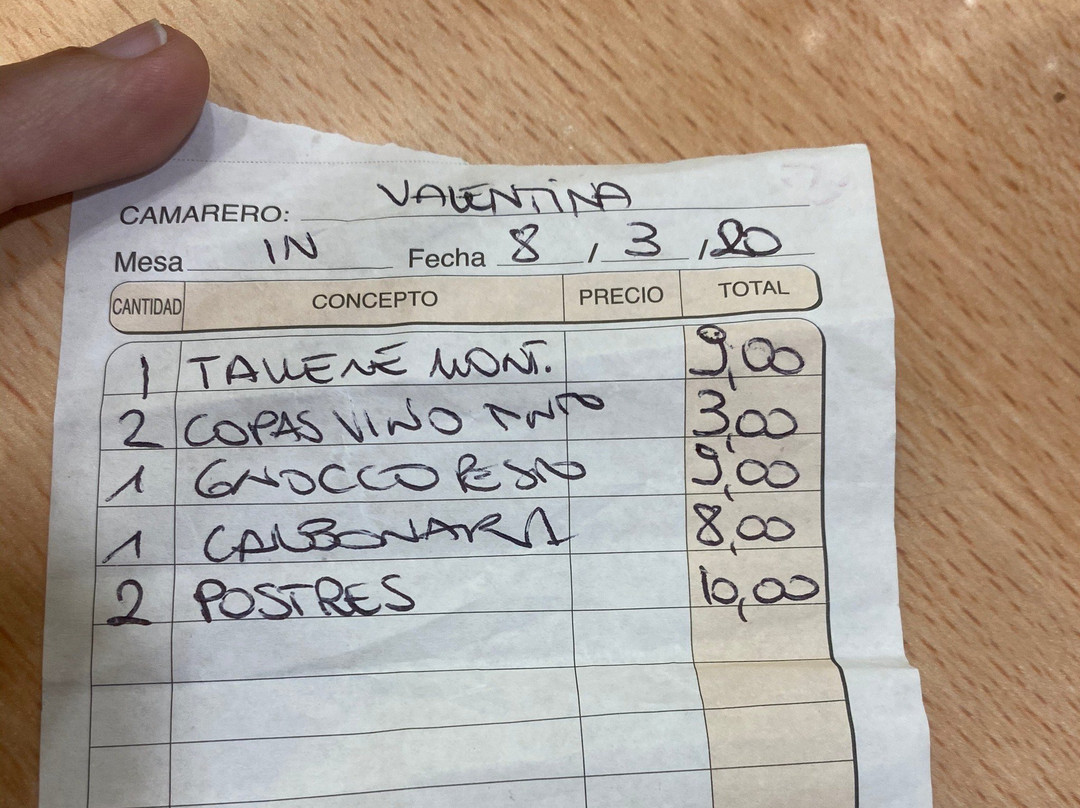 CAMARERO: VALENTINA
Mesa IN Fecha 8 / 3 / 20
CANTIDAD CONCEPTO PRECIO TOTAL
1 MONT. 9,00
2 COPAS VINO TINTO 3,00
1 GNOCCO PESTO 9,00
1 CALBONARA 8,00
2 POSTRES 10,00